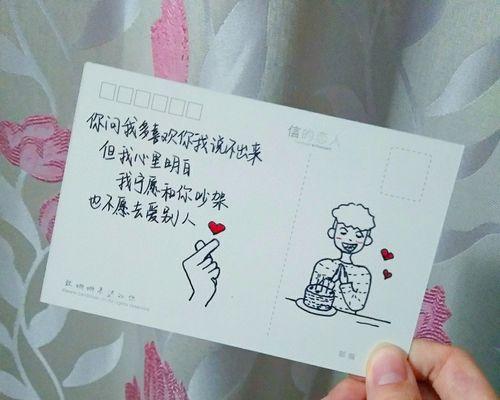 你问我多喜欢你我说不出来
但我心里明白
我宁愿和你吵架
也不愿去爱别人
信的恋人
邮编